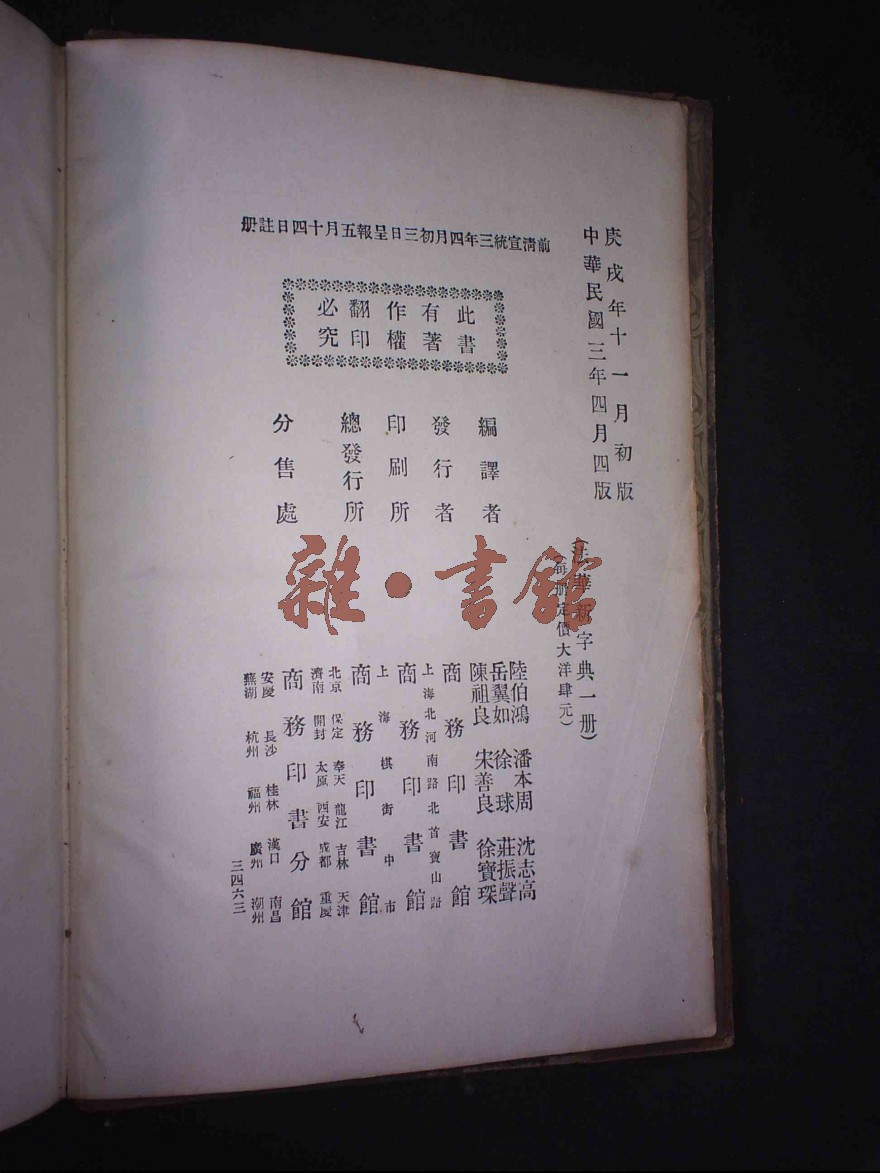 庚戌年十一月初版
中華民國三年四月四版
(法華新字典一册)
(每册定價大洋肆元)
前清宣統三年四月初三日呈報五月十四日註册
此書
有著
作權
翻印
必究
編譯者
陸伯鴻 潘本周 沈志高
岳翼如 徐球 莊振聲
陳祖良 宋善良 徐寶琛
發行者
商務印書館
印刷所
上海北河南路北首寶山路
商務印書館
總發行所
上海棋街中市
商務印書館
分售處
北京 保定 奉天 龍江 吉林 天津
濟南 開封 太原 西安 成都 重慶
商務印書分館
安慶 長沙 桂林 漢口 南昌
蕪湖 杭州 福州 廣州 潮州
三四六三
雜·書館